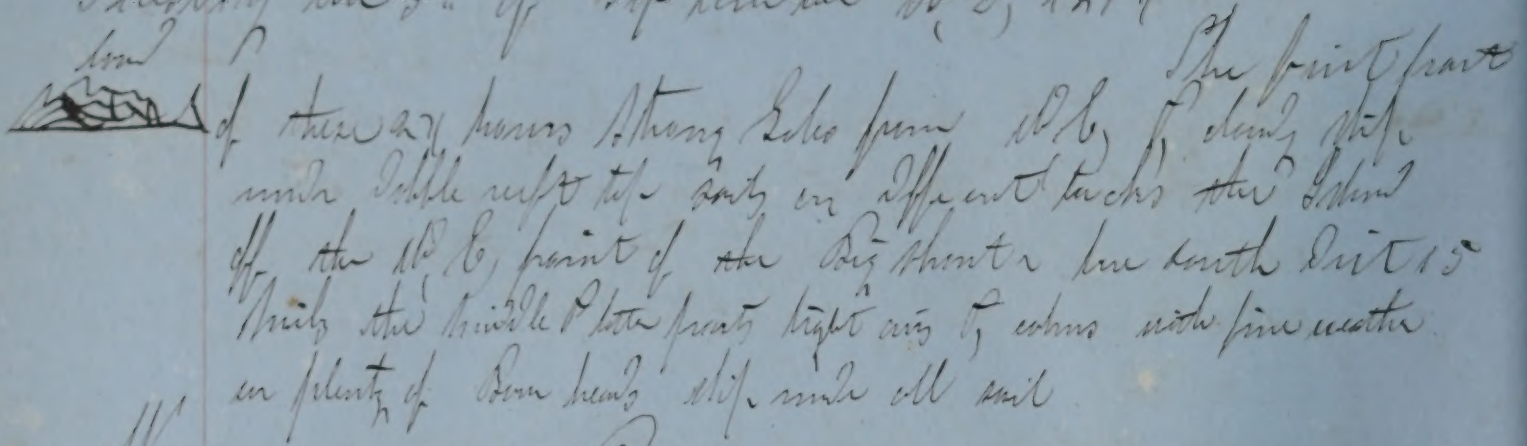 land
The first part
of these 24 hours Strong Gales from N E, & cloudy Ship
under dobble reeft top sails on different tacks the Island
off the N, E, point of the Big Shant r bore south Dist 15
Miles the Middle & latter parts light airs & calms with fine weather
in plenty of Bow heads Ship under all sail